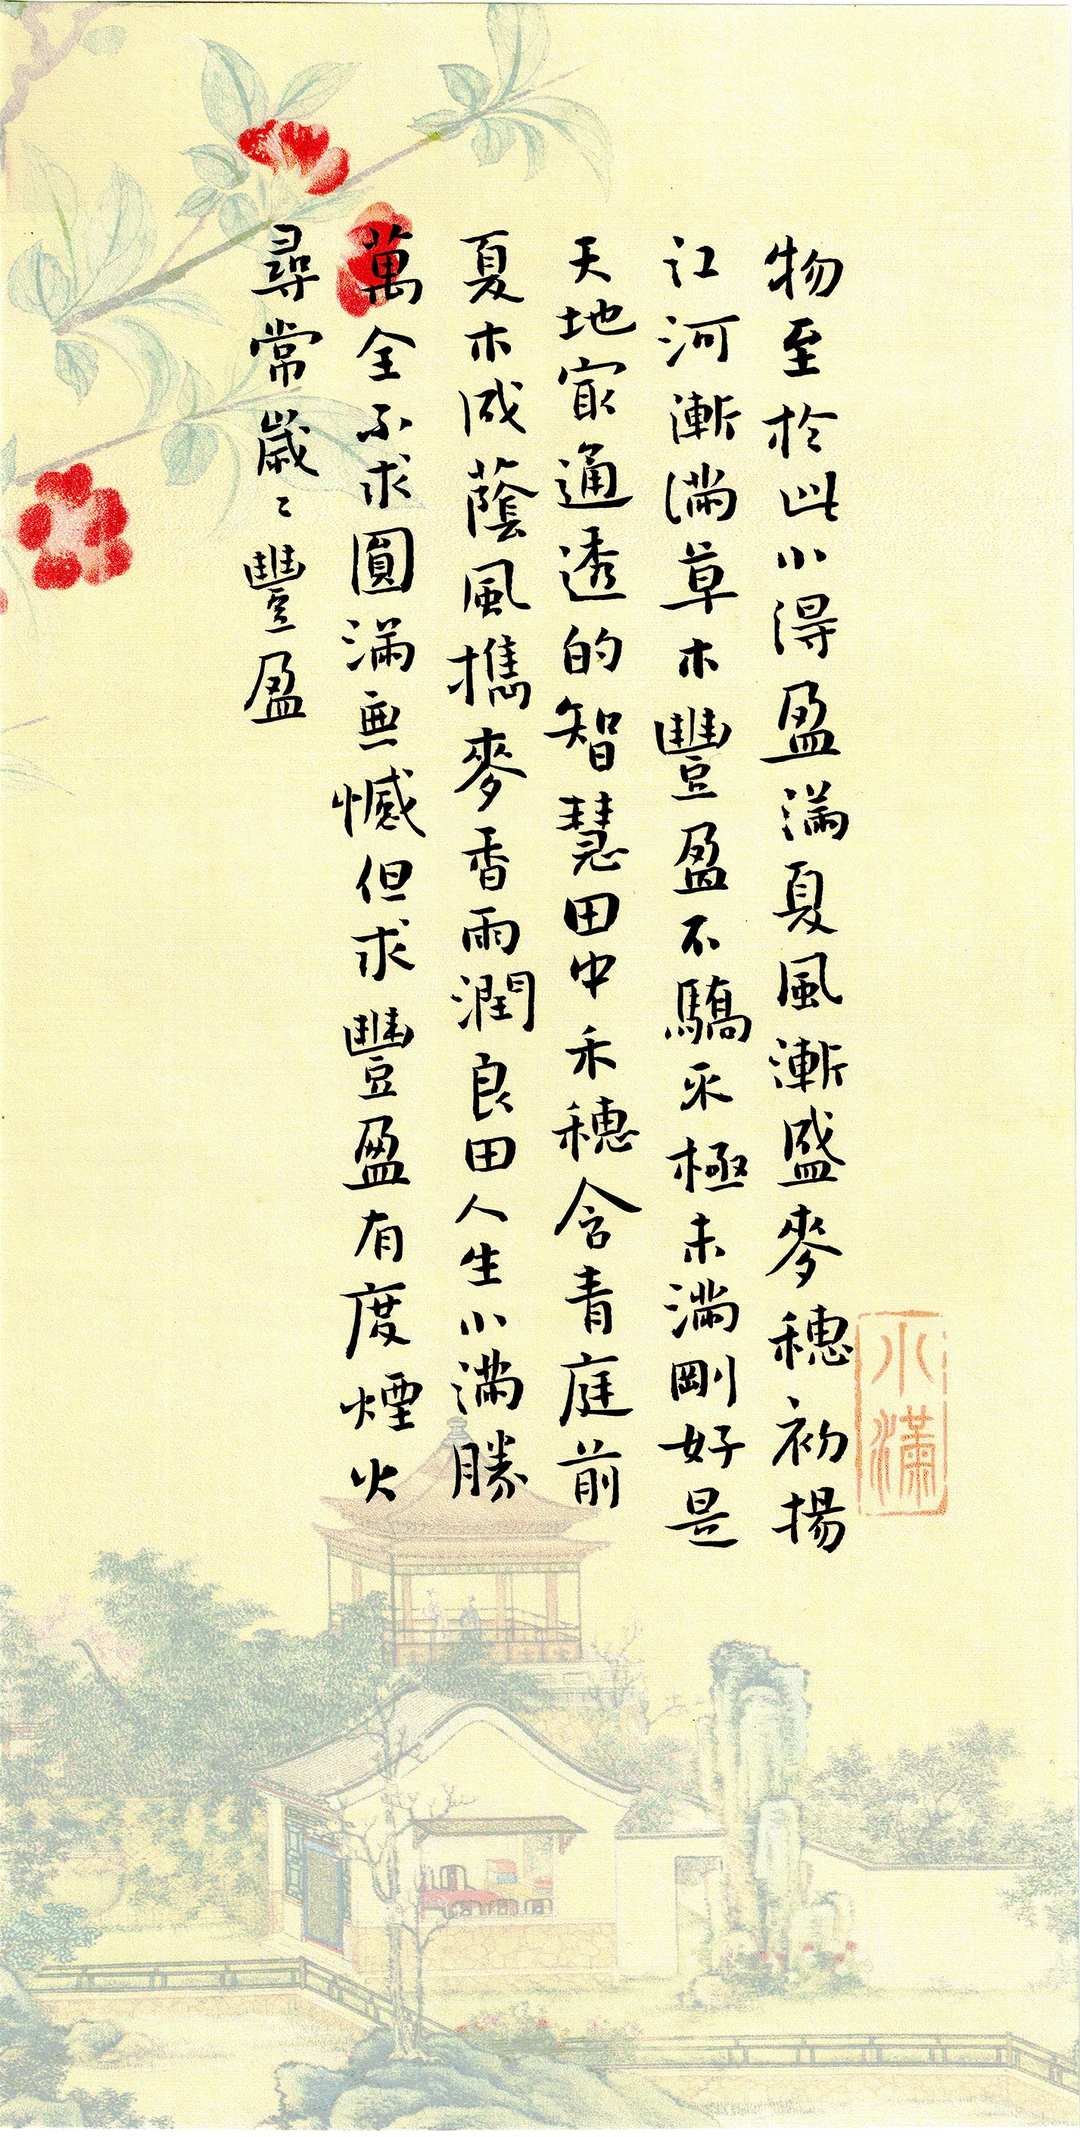 物至於此小得盈滿夏風漸盛麥穗初揚
江河漸滿草木豐盈不驕不極未滿剛好是
天地最通透的智慧田中禾穗含青庭前
夏木成蔭風攜麥香雨潤良田人生小滿勝
萬全不求圓滿無憾但求豐盈有度煙火
尋常歲〻豐盈
小滿